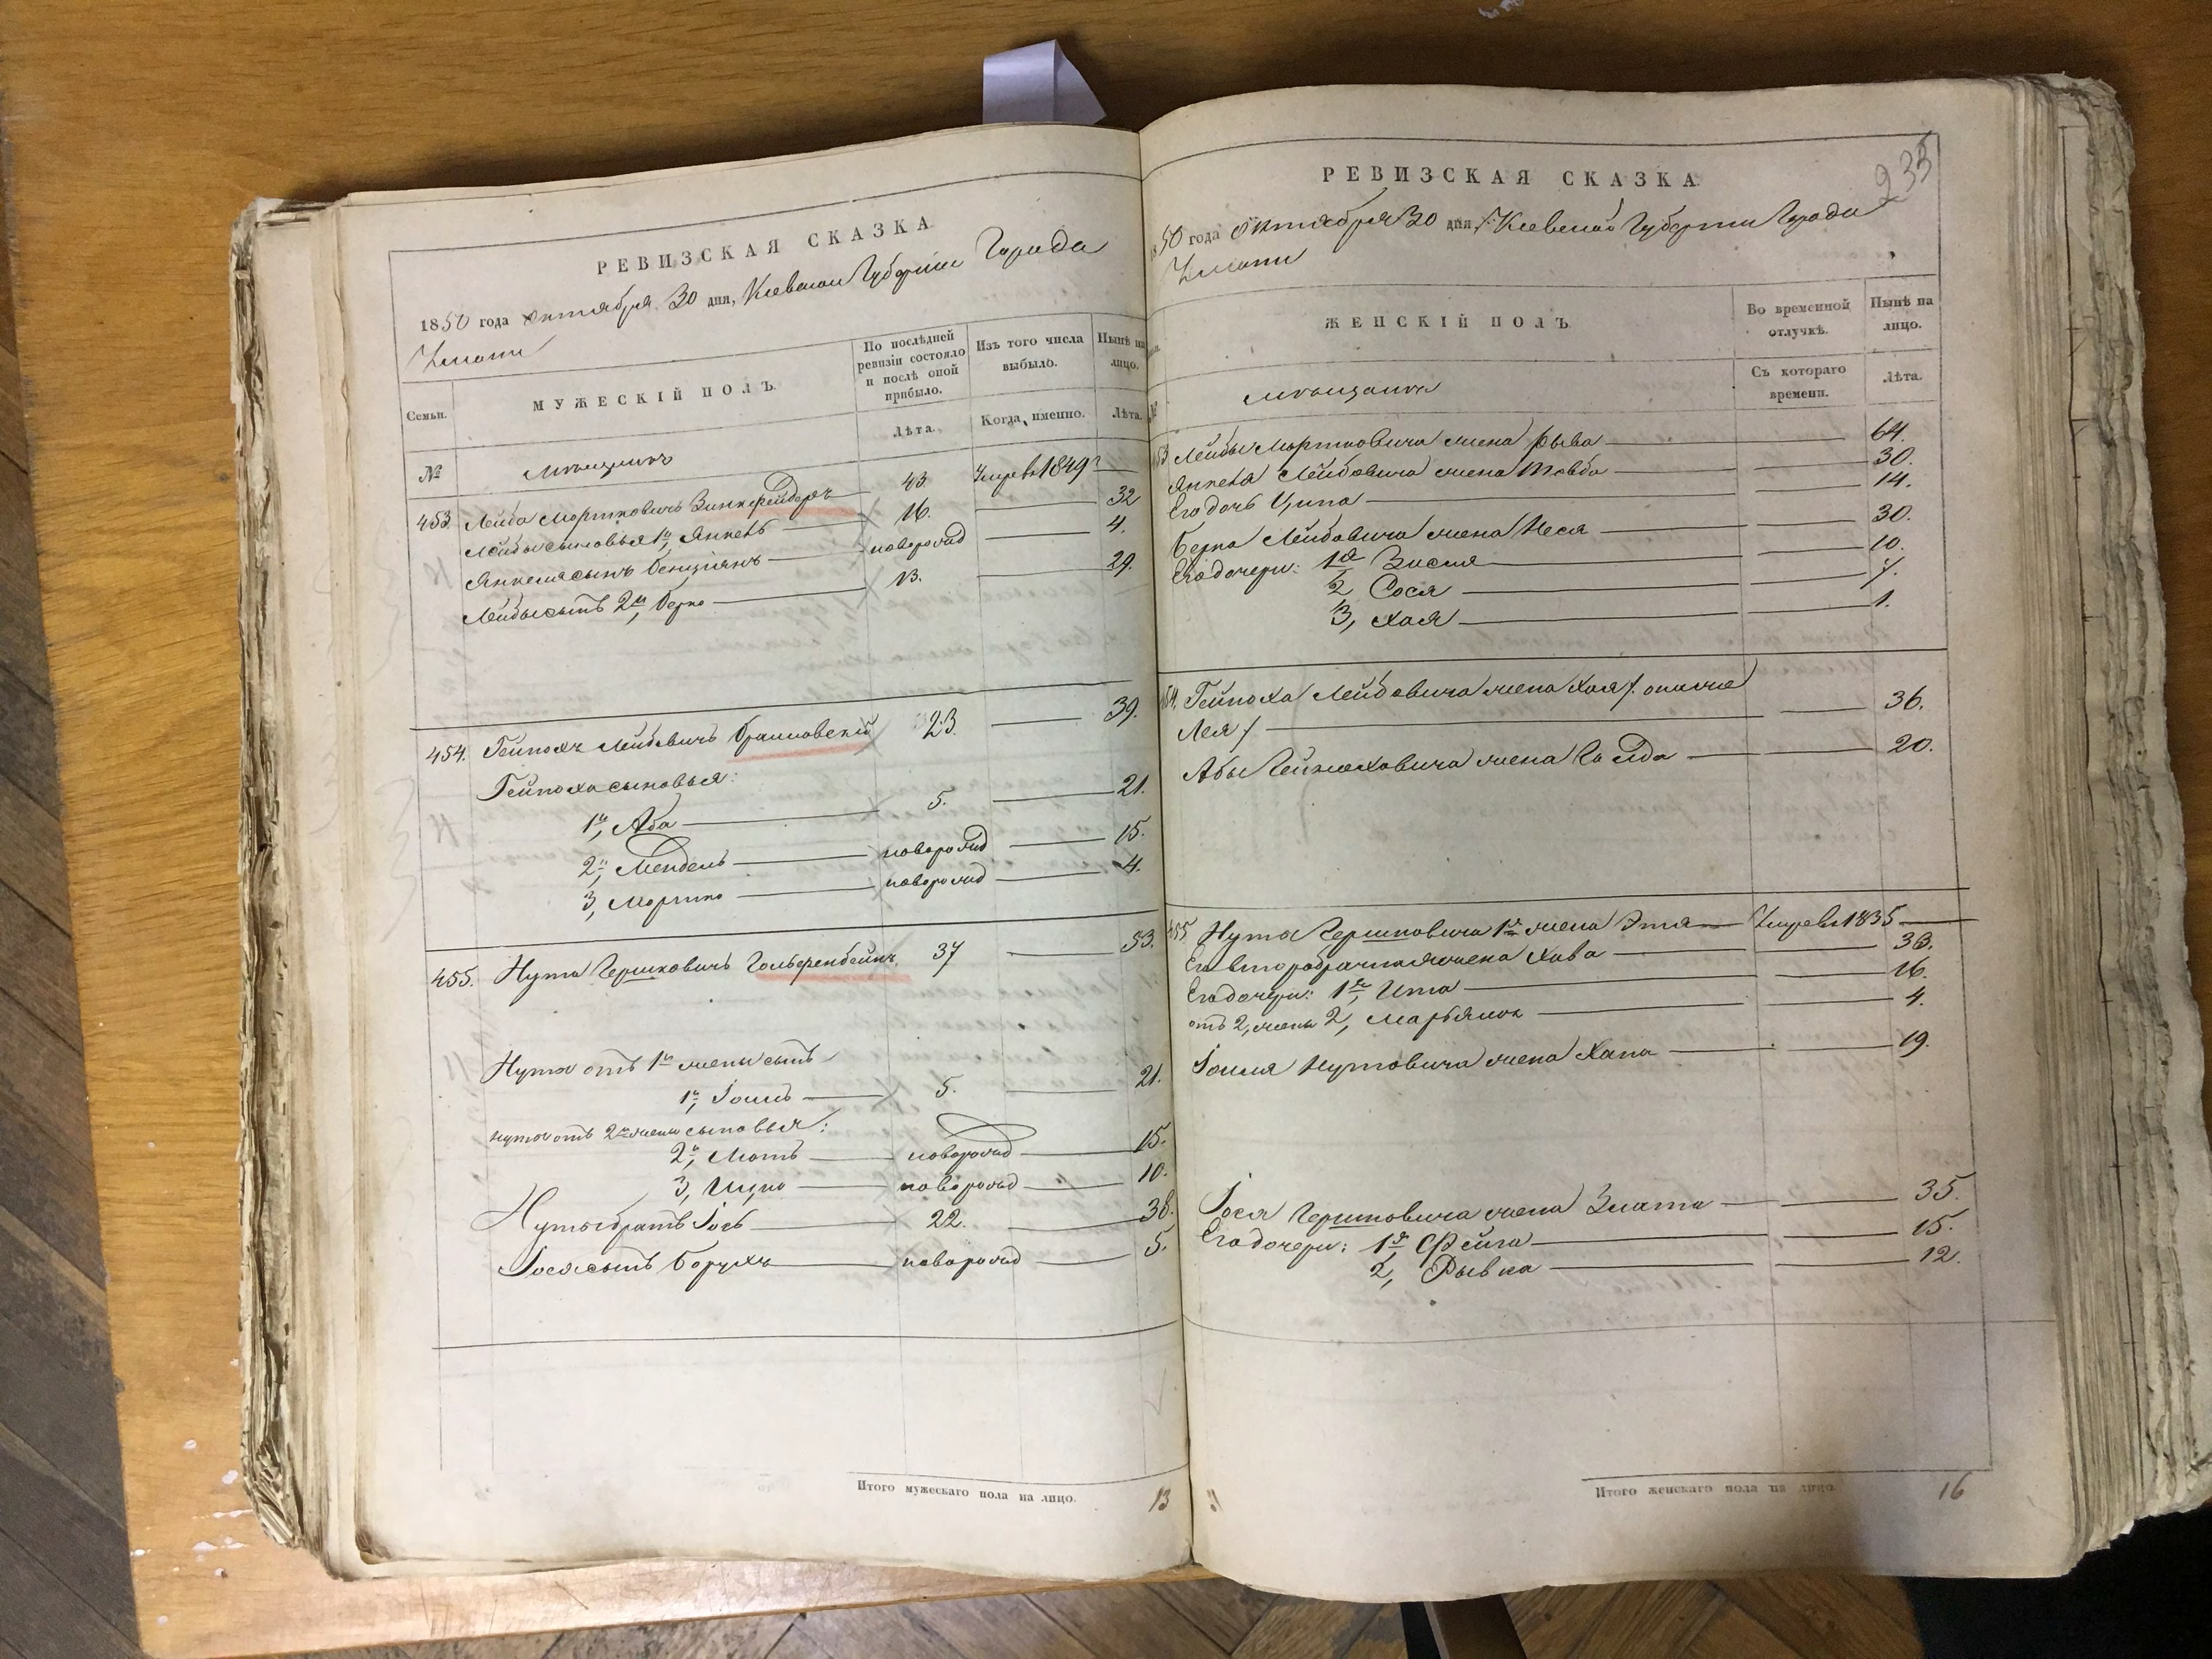 РЕВИЗСКАЯ СКАЗКА
1850 года октября 30 дня, Киевской Губернии Города
Умани
Семьи.
МУЖЕСКІЙ ПОЛЪ.
По послѣдней ревизіи состояло и послѣ оной прибыло.
Изъ того числа выбыло.
Нынѣ на лицо.
Лѣта.
Когда именно.
Лѣта.
№
мѣщанъ
453 Лейба Мортковичъ 43 Умре въ 1849 г
Лейбы сыновья 1й, Янкель 16. 32
Янкеля сынъ Бенціянъ новорожд 4.
Лейбы сынъ 2й, Берко 13. 29.
454. Гейнохъ Лейбовичъ Браиловскій 23. 39.
Гейноха сыновья:
1й, Аба 5. 21.
2й, Мендель новорожд 15.
3, Мортко новорожд 4.
455. Нута Гершковичъ Гольфенбейнъ, 37 53.
Нута отъ 1й жены сынъ
1й, Іоиль 5. 21.
Нута отъ 2й жены сыновья:
2й, Мотъ новорожд 15.
3, Ицко новорожд 10.
Нуты братъ Іось 22. 38.
Іося сынъ Борухъ новорожд 5.
Итого мужескаго пола на лицо. 13
235
РЕВИЗСКАЯ СКАЗКА
1850 года октября 30 дня, Киевской Губернии Города
Умани
ЖЕНСКІЙ ПОЛЪ
Во временной отлучкѣ.
Нынѣ на лицо.
мѣщанъ
Съ котораго времени.
Лѣта.
Лейбы Мортковича жена Рыва 64.
Янкеля Лейбовича жена Товба 30.
Его дочь Ципа 14.
Берка Лейбовича жена Неся 30.
Его дочери: 1я Зисля 10.
2, Сося 7.
3, Хая 1.
454. Гейноха Лейбовича жена Хая /. онаже
Лея / 36.
Абы Гейноховича жена Голда 20.
455 Нута Гершковича 1я жена Этя Умре въ 1835
Его второбрачная жена Хава 36.
Его дочери: 1я, Ита 16.
отъ 2, жены 2, Марьяся 4.
Іоиля Нутовича жена Хана 19.
Іося Гершковича жена Злата 35.
Его дочери: 1я, Фейга 15.
2, Рывка 12.
Итого женскаго пола на лицо. 16